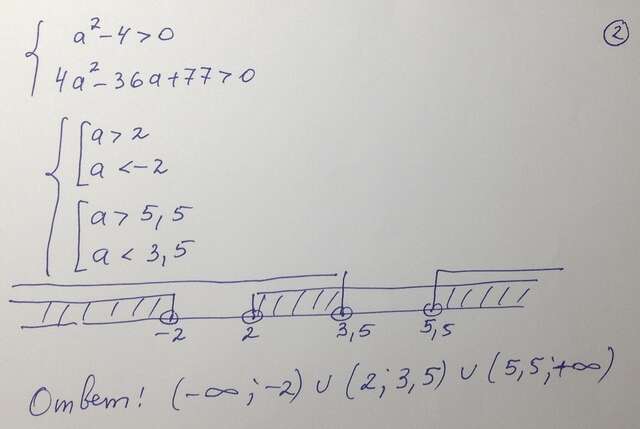 ②
a²-4>0
4a²-36a+77>0
a>2
a<-2
a>5,5
a<3,5
-2 2 3,5 5,5
Ответ! (-∞;-2) ∪ (2;3,5) ∪ (5,5;+∞)